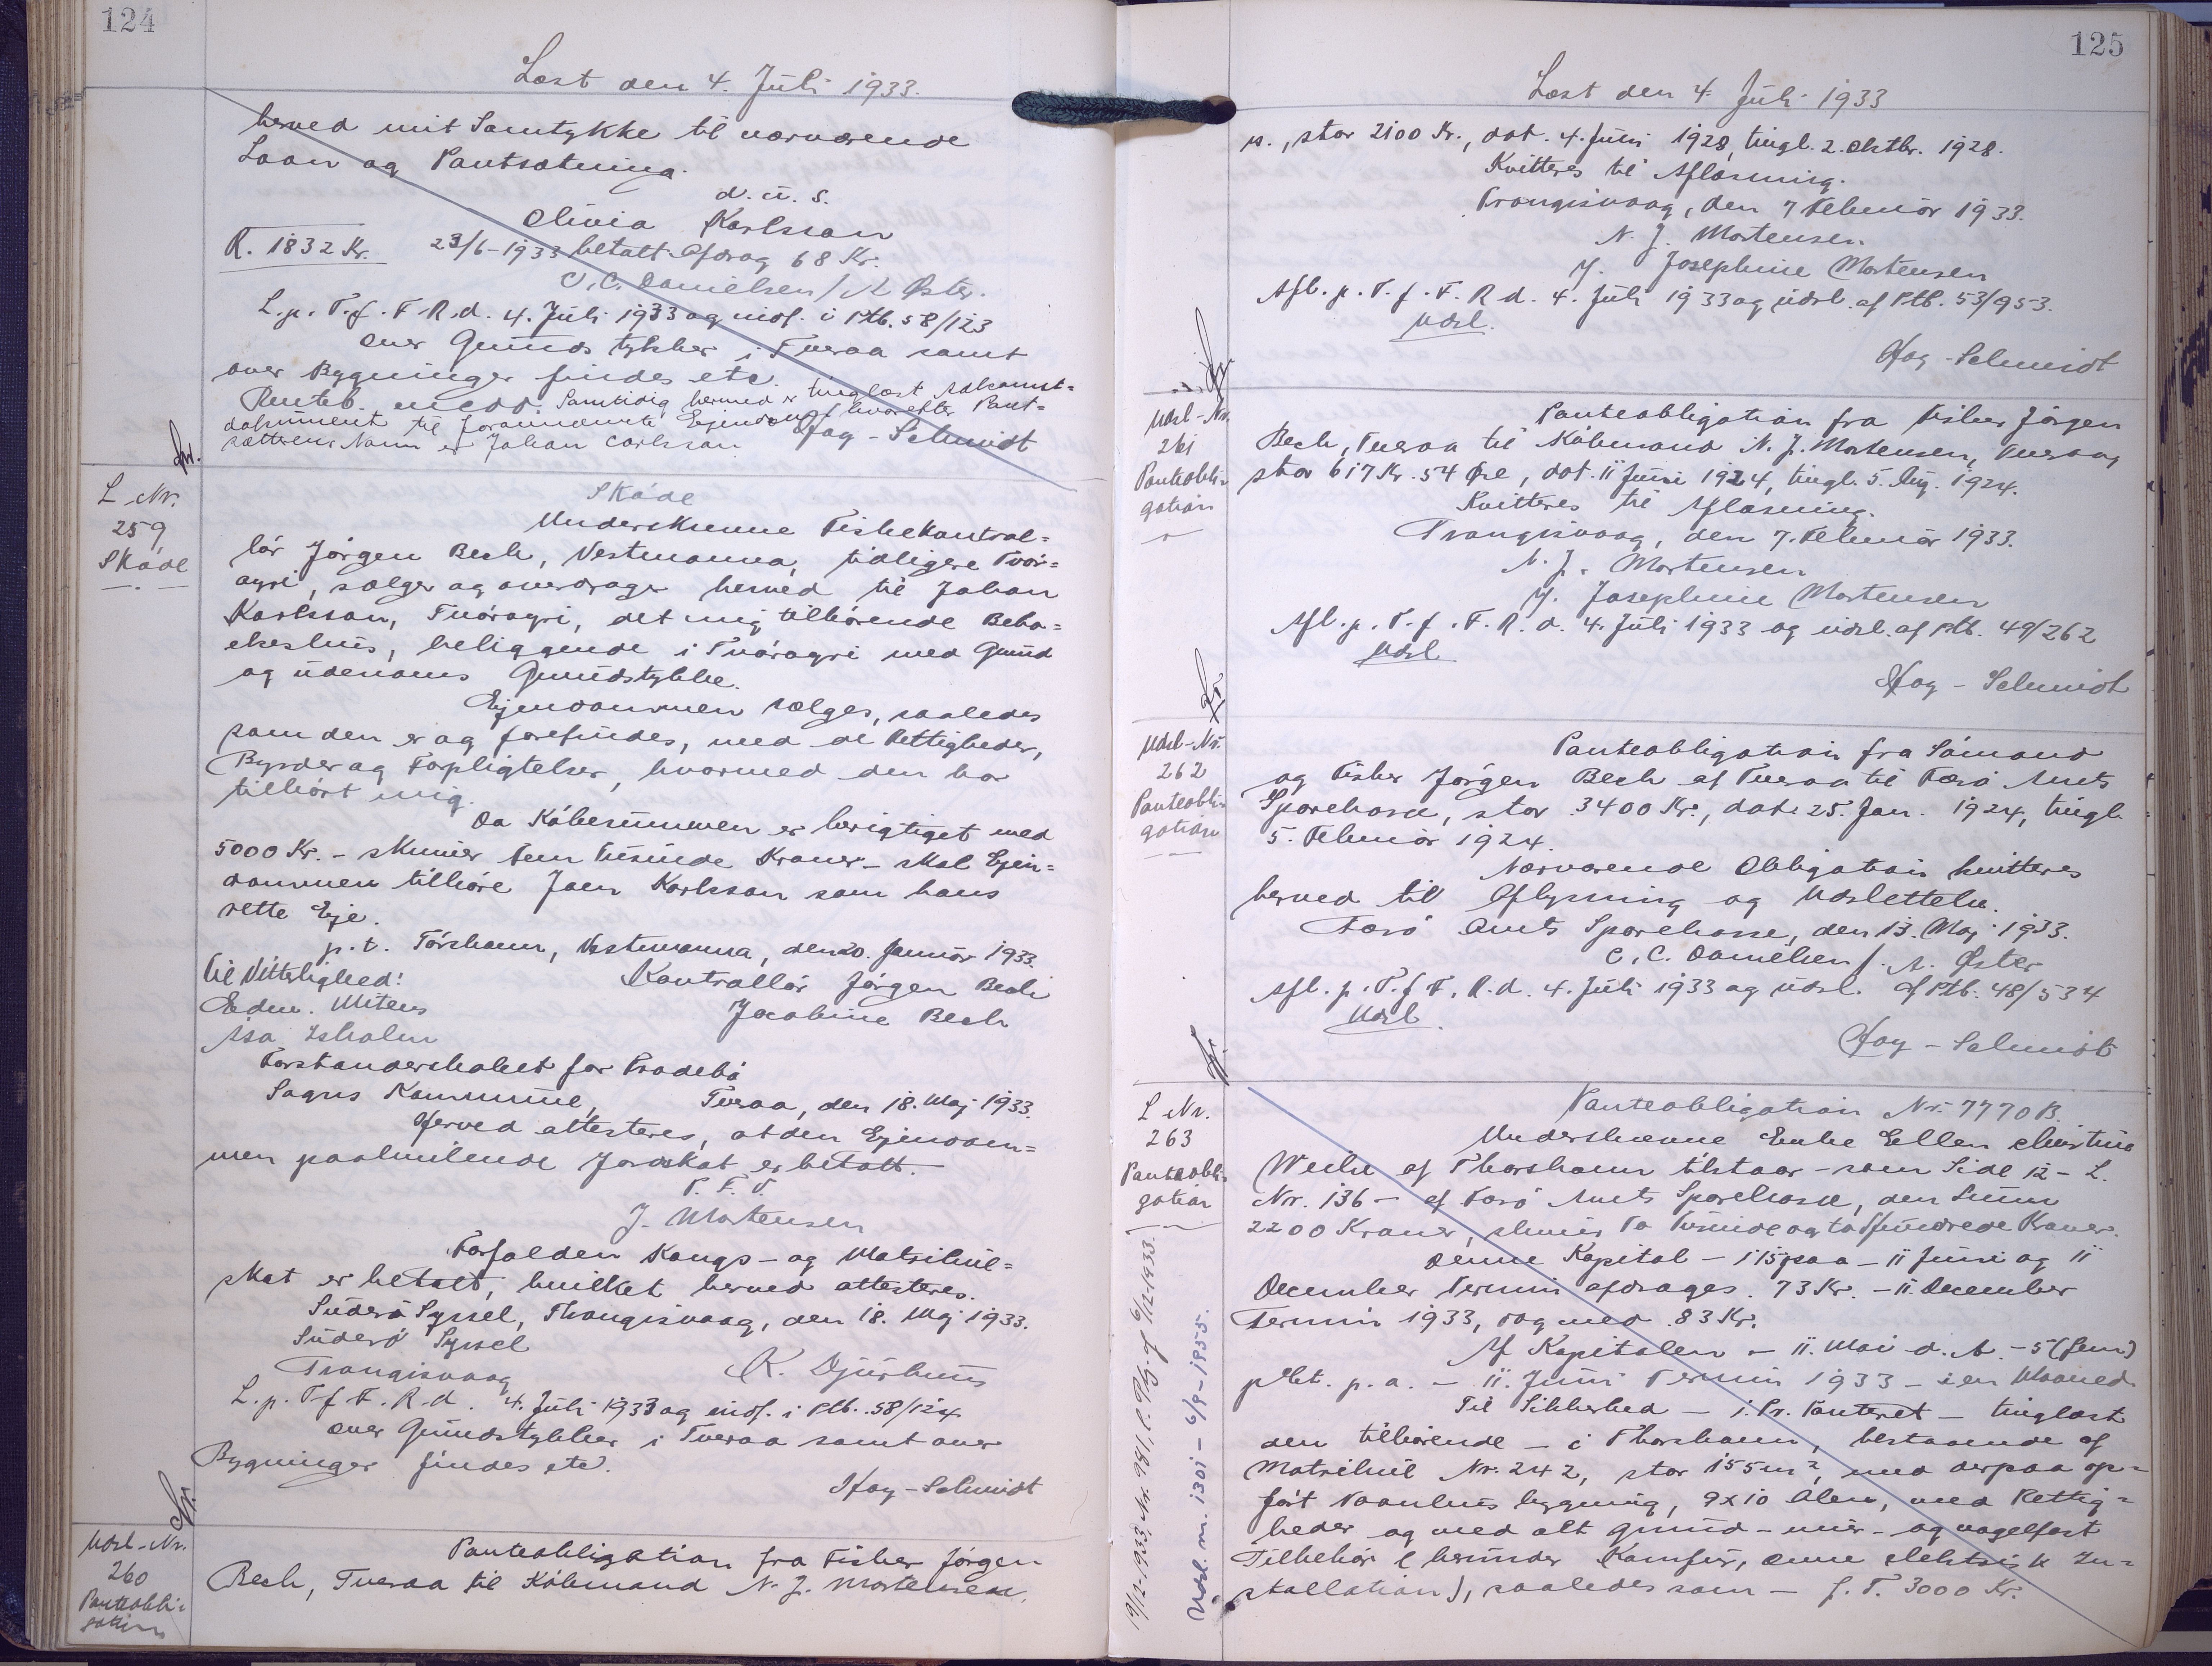 124
Læst den 4. Juli 1933.
herved mit Samtykke til nærværende
Laan og Pantsætning.
d. u. s.
Olivia Karlsson
R. 1832 Kr. 23/6-1933 betalt Afdrag 68 Kr.
C. C. Danielsen / A Øster.
L. p. T. f. F. R. d. 4. Juli 1933 og indf. i Ptb. 58/123
over Grundstykker i Tveraa samt
over Bygninger findes etc.
Panteb. Samtidig hermed er tinglæst Adkomst=
dokument til forannævnte Ejendom, hvorefter Pant=
sætterens Navn er Johan Carlsson.
Høg-Schmidt
L Nr.
259
Skøde
Skøde
Underskrevne Fiskekontrol=
lør Jørgen Bech, Vestmanna, tidligere Tvør=
oyri, sælger og overdrager herved til Johan
Karlsson, Tvøroyri, det mig tilhørende Bebo=
elseshus, beliggende i Tvøroyri med Grund
og udenoms Grundstykke.
Ejendommen sælges, saaledes
som den er og forefindes, med de Rettigheder,
Byrder og Forpligtelser, hvormed den har
tilhørt mig.
Da Købesummen er berigtiget med
5000 Kr. - skriver fem Tusinde Kroner - skal Ejen=
dommen tilhøre Joen Karlsson som hans
rette Eje.
p. t. Tórshavn, Vestmanna, den 20. Januar 1933.
Til Vitterlighed: Kontrollør Jørgen Bech
Edm. Mitens Jacobine Bech
Forstanderskabet for Frodebø
Sogns Kommune, Tveraa, den 18. Maj 1933.
Herved attesteres, at den Ejendom=
men paahvilende Jordskat er betalt.
P. F. V.
J. Mortensen
Forfalden Kongs- og Matrikul=
skat er betalt, hvilket herved attesteres.
Suderø Syssel, Thrangisvaag, den 18. Maj 1933.
Suderø Syssel
Trangisvaag K. Djurhuus
L. p. T. f. F. R. d. 4. Juli 1933 og indf. i Ptb. 58/124
over Grundstykker i Tveraa samt over
Bygninger findes etc.
Høg-Schmidt
Udsl-Nr.
260
Panteobli=
gation
Panteobligation fra Fisker Jørgen
Bech, Tveraa til Købmand N. J. Mortensen,
125
Læst den 4. Juli 1933
s., stor 2100 Kr., dat. 4. Juni 1928, tingl. 2. Oktbr. 1928.
Kvitteres til Aflæsning.
Trangisvaag, den 7 Februar 1933.
N. J. Mortensen
Josephine Mortensen
Afl. p. T. f. F. R. d. 4. Juli 1933 og udsl. af Ptb. 53/953.
Udsl.
Høg-Schmidt
Udsl-Nr.
261
Panteobli=
gation
Panteobligation fra Fisker Jørgen
Bech, Tveraa til Købmand N. J. Mortensen,
stor 617 Kr. 54 Øre, dat. 11 Juni 1924, tingl. 5. Aug. 1924.
Kvitteres til Aflæsning.
Trangisvaag, den 7. Februar 1933.
N. J. Mortensen
Josephine Mortensen
Afl. p. T. f. F. R. d. 4. Juli 1933 og udsl. af Ptb. 49/262
Udsl
Høg-Schmidt
Udsl-Nr.
262
Panteobli=
gation
Panteobligation fra Sømand
og Fisker Jørgen Bech af Tveraa til Færø Amts
Sparekasse, stor 3400 Kr., dat. 25. Jan. 1924, tingl.
5. Februar 1924.
Nærværende Obligation kvitteres
herved til Aflysning og Udslettelse.
Færø Amts Sparekasse, den 13. Maj 1933.
C. C. Danielsen /. A. Øster
Afl. p. T. f. F. R. d. 4. Juli 1933 og udsl. af Ptb. 48/534
Udsl.
Høg-Schmidt
L Nr.
263
Panteobli=
gation
Panteobligation Nr. 7770 B.
Underskrevne Enke Ellen Christine
Weihe af Thorshavn tilstaar - som Side 12 - L.
Nr. 136 - af Færø Amts Sparekasse, den Summa
2200 Kroner, skriver To Tusinde og to Hundrede Kroner.
Denne Kapital - 11 Juni og 11
December Termin afdrages 73 Kr. - 11. December
Termin 1933, dog med 83 Kr.
Af Kapitalen - 11. Mai d. A. - 5 (fem)
pCt. p. a. - 11. Juni Termin 1933 - i en Maaned
Til Sikkerhed - 1. Pr. Panteret - tinglæst
den tilhørende - i Thorshavn, bestaaende af
Matrikul Nr. 242, stor 155 m², med derpaa op=
ført Vaanhus bygning, 9x10 Alen, med Rettig=
heder og med alt grund- mur- og nagelfast
Tilbehør (herunder Komfur, Ovne elektrisk In=
stallation), saaledes som - f. T. 3000 Kr.
Udsl. m. 1301 - 6/9-1955.